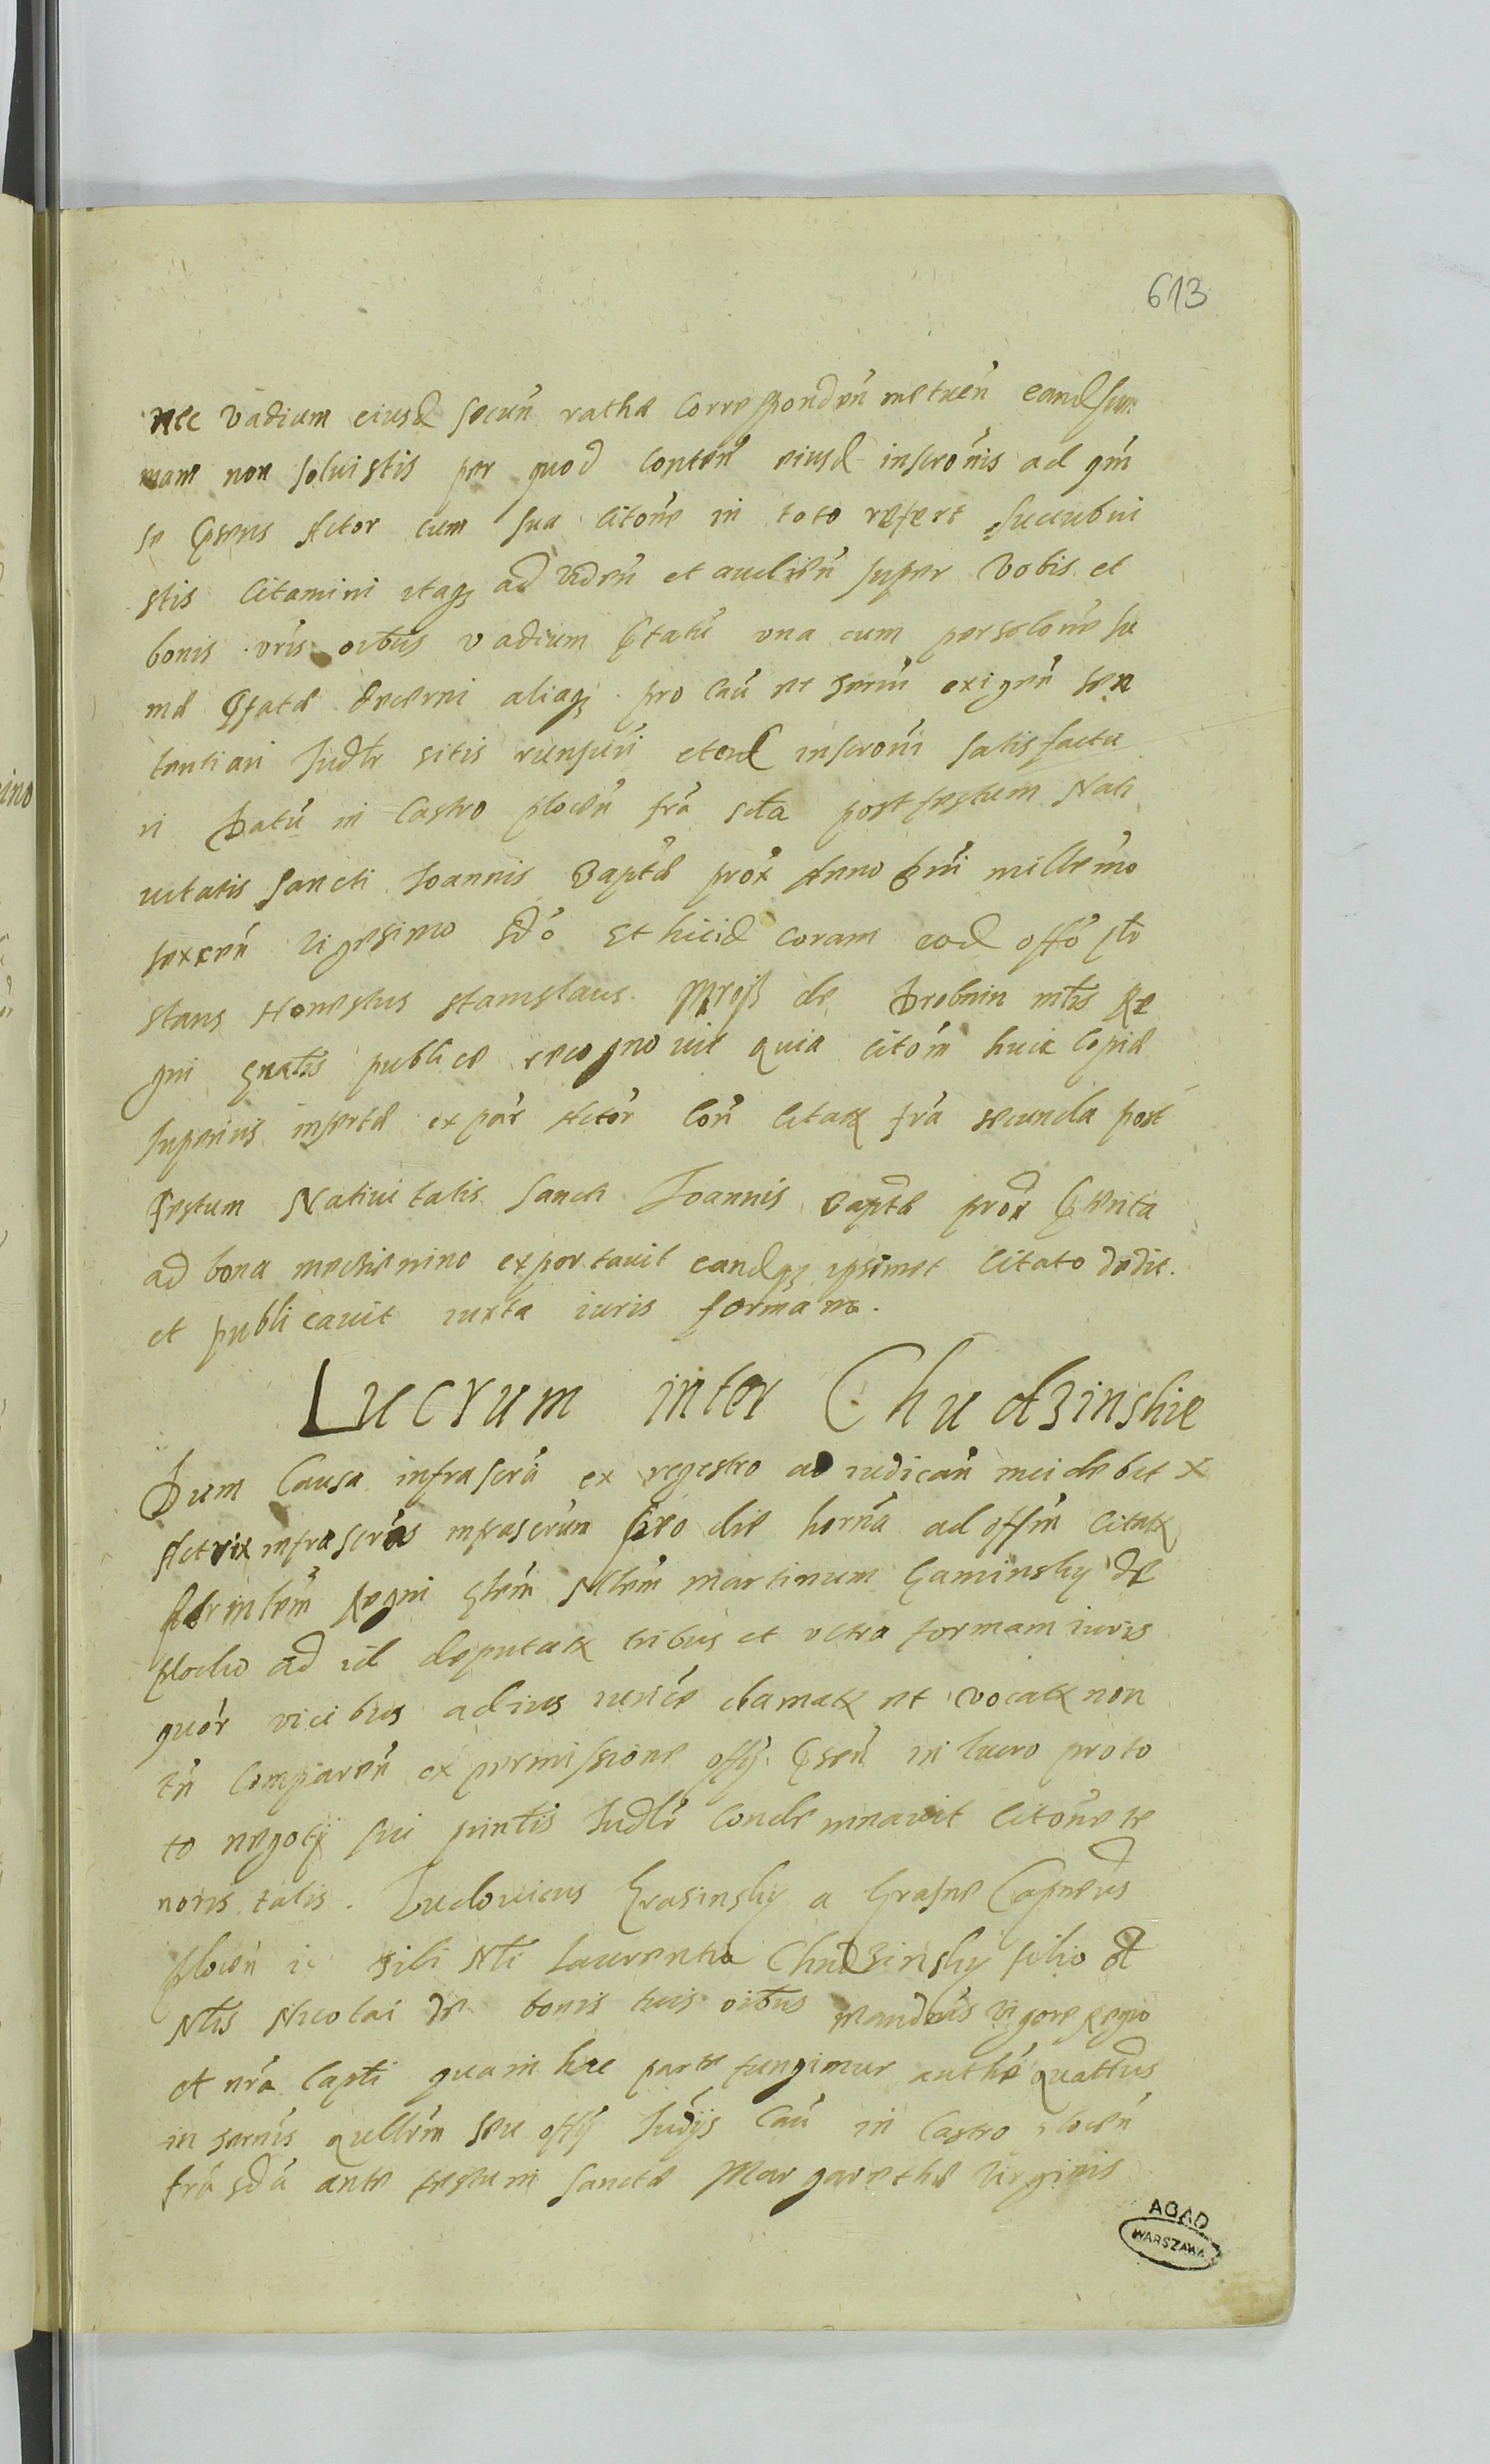 613
nec vadium eiusd secun̄ rathæ Corresponden̄ metuen̄ eand sum
mam non soluistis per quod Conten̄ eiusd inscrōnis ad qm̄
se p̄sens Actor cum sua Citōne in toto refert succubui
stis Citamini itaq ad viden̄ et audien̄ super Vobis et
bonis vr̄is oībus vadium p̄tatū una cum persolōne su
mæ p̄fatæ decerni aliaq pro Caū et term̄ exigen̄ sen
tentiari Judlr sitis rūnsuri eterd inscrōni satisfactu
ri Datū in Castro plocen̄ frā scda post festum Nati
uitatis Sancti Joannis Bapt̄æ prox̄ Anno Dn̄i millemo
sexcen̄ vigesimo Sdō Et hicid coram eod offō p̄to
stans Honestus Stanislaus de Drobnin mt̄is Re
gni gn̄alis publice recognouit quia Citōm huic Copiæ
superius insertæ ex par̄ Actor̄ Con̄ Citatx frā secunda post
festum Natiuitatis Sancti Joannis Baptæ prox̄ p̄terita
ad bona mochenino exportauit eandq ipsimet Citato dedit.
et publicauit iuxta iuris formam.
Lucrum inter Chudzinskie
Dum Causa infrascrā ex regestro ad iudican̄ incidebit x
Actrix infrascrās infrascrūm pro die hornā ad offm̄ Citatx
per mlēm Regni glēm Nlēm Martinum Gaminsky de
plocko ad id deputatx tribus et vltra formam iuris
quōr vicibus ad ius iurīce clamatx et vocatx non
tn̄ Comparen̄ ex permissione offÿ p̄sen̄ in lucro pro to
to negotÿ sui pūntis Judlr Condemnauit Citōne te
noris talis. Ludouicus Krasinsky a Krasne Capneus
plocen̄ ic tibi Nli Laurentio Chudzinsky filio ol
Nlis Nicolai de bonis tuis oībus mandaūs vigore Regio
et nr̄a Capt̄i qua in hac parte fungimur authē quattus
in term̄is qullēm seu offÿ Judÿs Caū in Castro plocen̄
frā sdā ante festum Sanctæ Margarethæ Virginis
AGAD
WARSZAWA